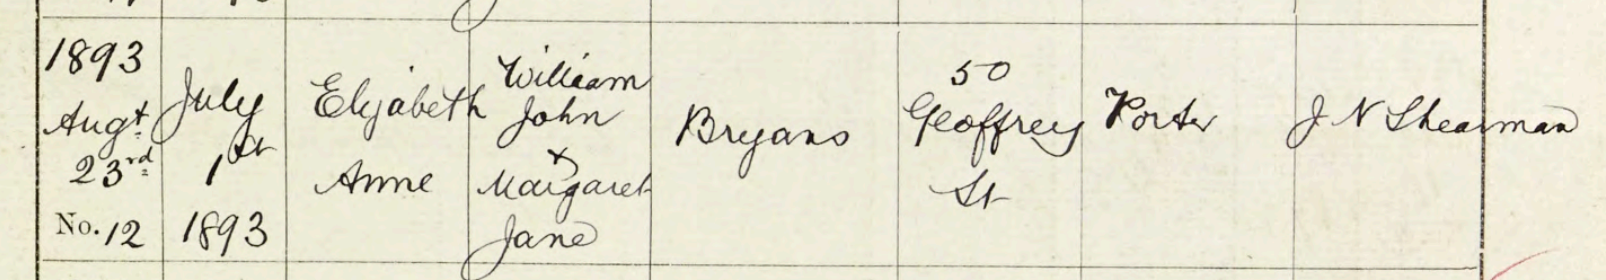 1893
Augt.
23rd.
No. 12
July
1st
1893
Elizabeth
Anne
William
John
&
Margaret
Jane
Bryans
50
Geoffrey
St
Porter
J N Shearman